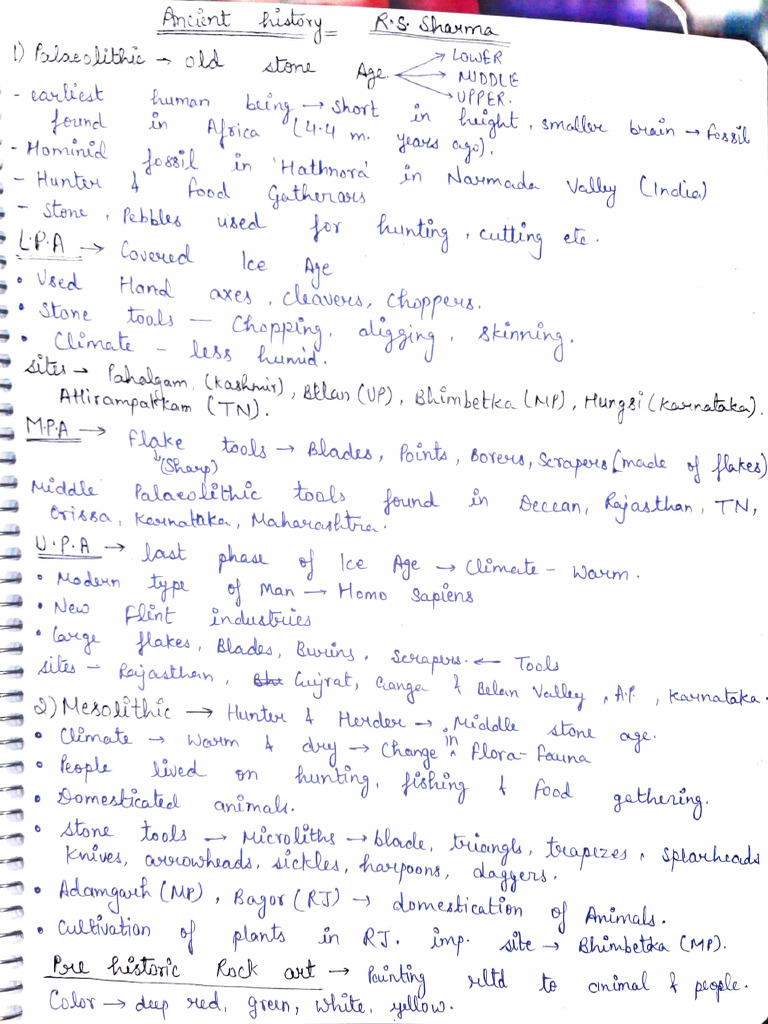 Ancient history R.S. Sharma
1) Palaeolithic → old stone Age. → LOWER
→ MIDDLE
→ UPPER.
- earliest human being → short in height, smaller brain → fossil
found in Africa (4.4 m. years ago).
- Hominid fossil in 'Hathnora' in Narmada Valley (India)
- Hunter & food Gatherars
- Stone, Pebbles used for hunting, cutting etc.
L.P.A → Covered Ice Age
• Used Hand axes, cleavers, choppers.
• Stone tools – Chopping, digging, skinning.
• Climate – less humid.
sites → Pahalgam, (Kashmir), Belan (UP), Bhimbetka (MP), Hungsi (Karnataka).
Attirampakkam (TN).
M.P.A → Flake tools → Blades, Points, Borers, Scrapers (made of flakes)
↓ (Sharp)
Middle Palaeolithic tools found in Deccan, Rajasthan, TN,
Orissa, Karnataka, Maharashtra.
U.P.A → last phase of Ice Age → Climate – Warm.
• Modern type of Man → Homo Sapiens
• New Flint industries
• Large flakes, Blades, Burins, Scrapers. ← Tools
sites – Rajasthan, Gujrat, Ganga & Belan Valley, A.P, Karnataka.
2) Mesolithic → Hunter & Herder → Middle stone age.
• Climate → Warm & dry → Change in Flora-Fauna
• People lived on hunting, fishing & food gathering.
• Domesticated animals.
• Stone tools → Microliths → blade, triangls, trapezes, spearheads
Knives, arrowheads, sickles, harpoons, daggers.
• Adamgarh (MP), Bagor (RJ) → domestication of Animals.
• Cultivation of plants in RJ. imp. site → Bhimbetka (MP).
Pre historic Rock art → Painting reltd to animal & people.
Color → deep red, green, white, yellow.